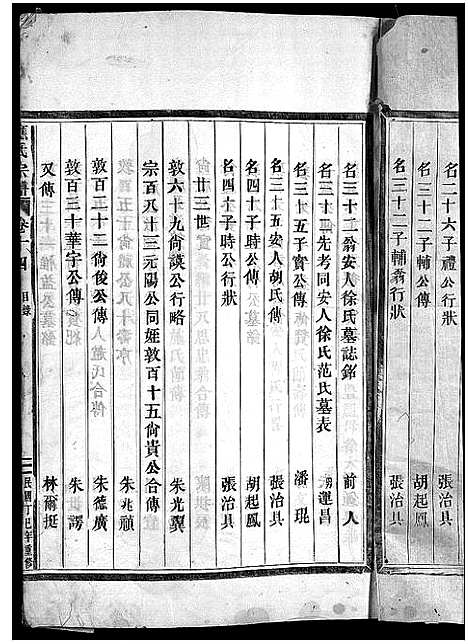 名二十六子禮公傳
名三十二子輔公傳 胡起鳳
名三十二子輔翁行狀 張治具
名三十二翁安人徐氏墓誌銘 前人
名三十四先考同安人徐氏范氏墓表 運昌
名三十五子實公傳 潘琨
名三十五安人胡氏傳 張治具
名四十子時公傳 胡起鳳
名四十子時公行狀 張治具
廿三世
敦六十九尙謨公行略 朱光翼
宗百八十三元陽公同姪敦百十五尙貴公合傳 朱兆頎
敦百五十二尙俊公傳 朱德廣
敦百三十華宇公傳 朱 諤
又傳 林爾挺
氏宗譜 卷十四 目錄
民國丁巳年重修